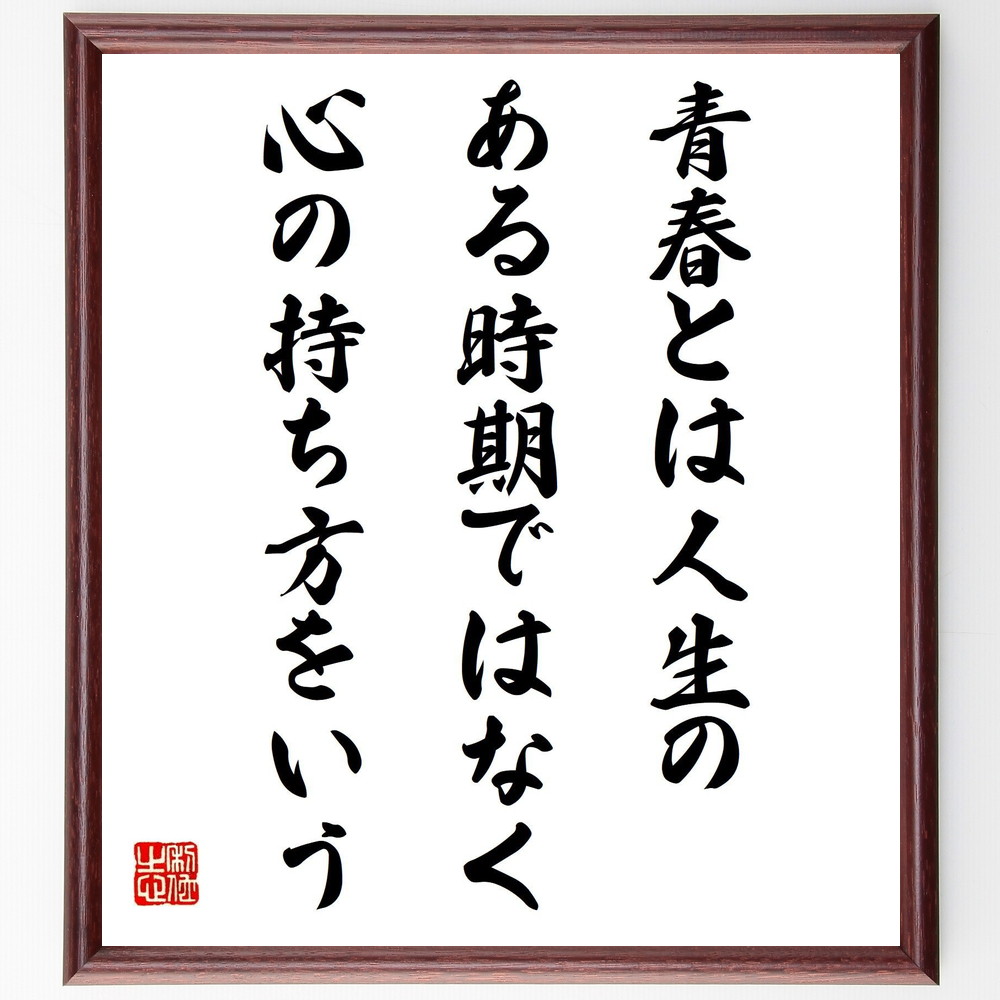 青春とは人生の
ある時期ではなく
心の持ち方をいう